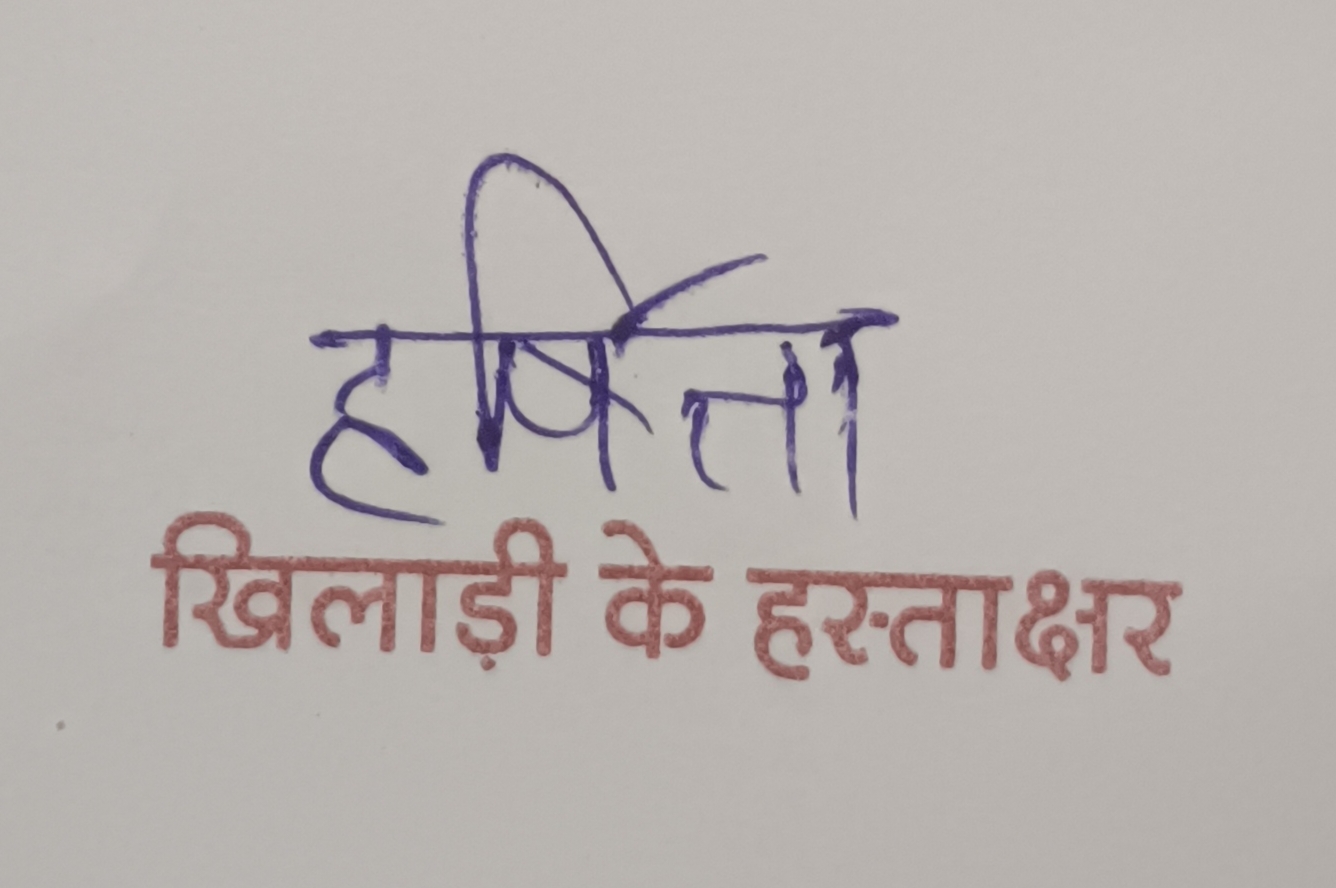 हर्षिता
खिलाड़ी के हस्ताक्षर